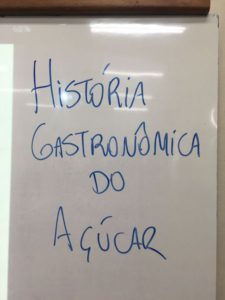 HISTÓRIA
GASTRONÔMICA
DO
AÇÚCAR